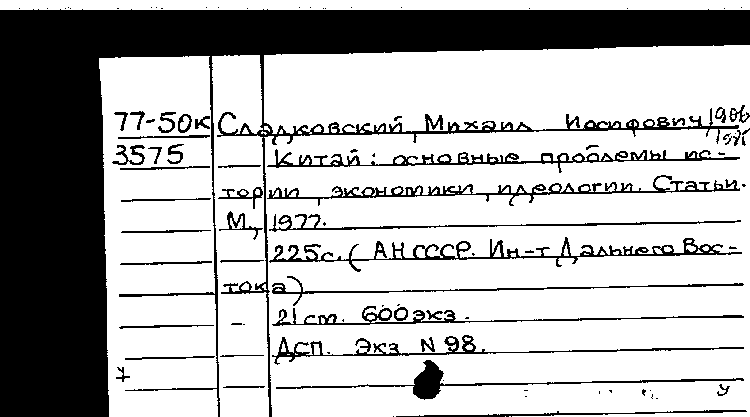 77-50к Сладковский, Михаил Иосифович, 1906
3575 Китай: основные проблемы ис-
тории, экономики, идеологии. Статьи.
М., 1977.
225с. (АН СССР. Ин-т Дальнего Вос-
тока)
– 21 ст. 600 экз.
ДСП. Экз N 98.